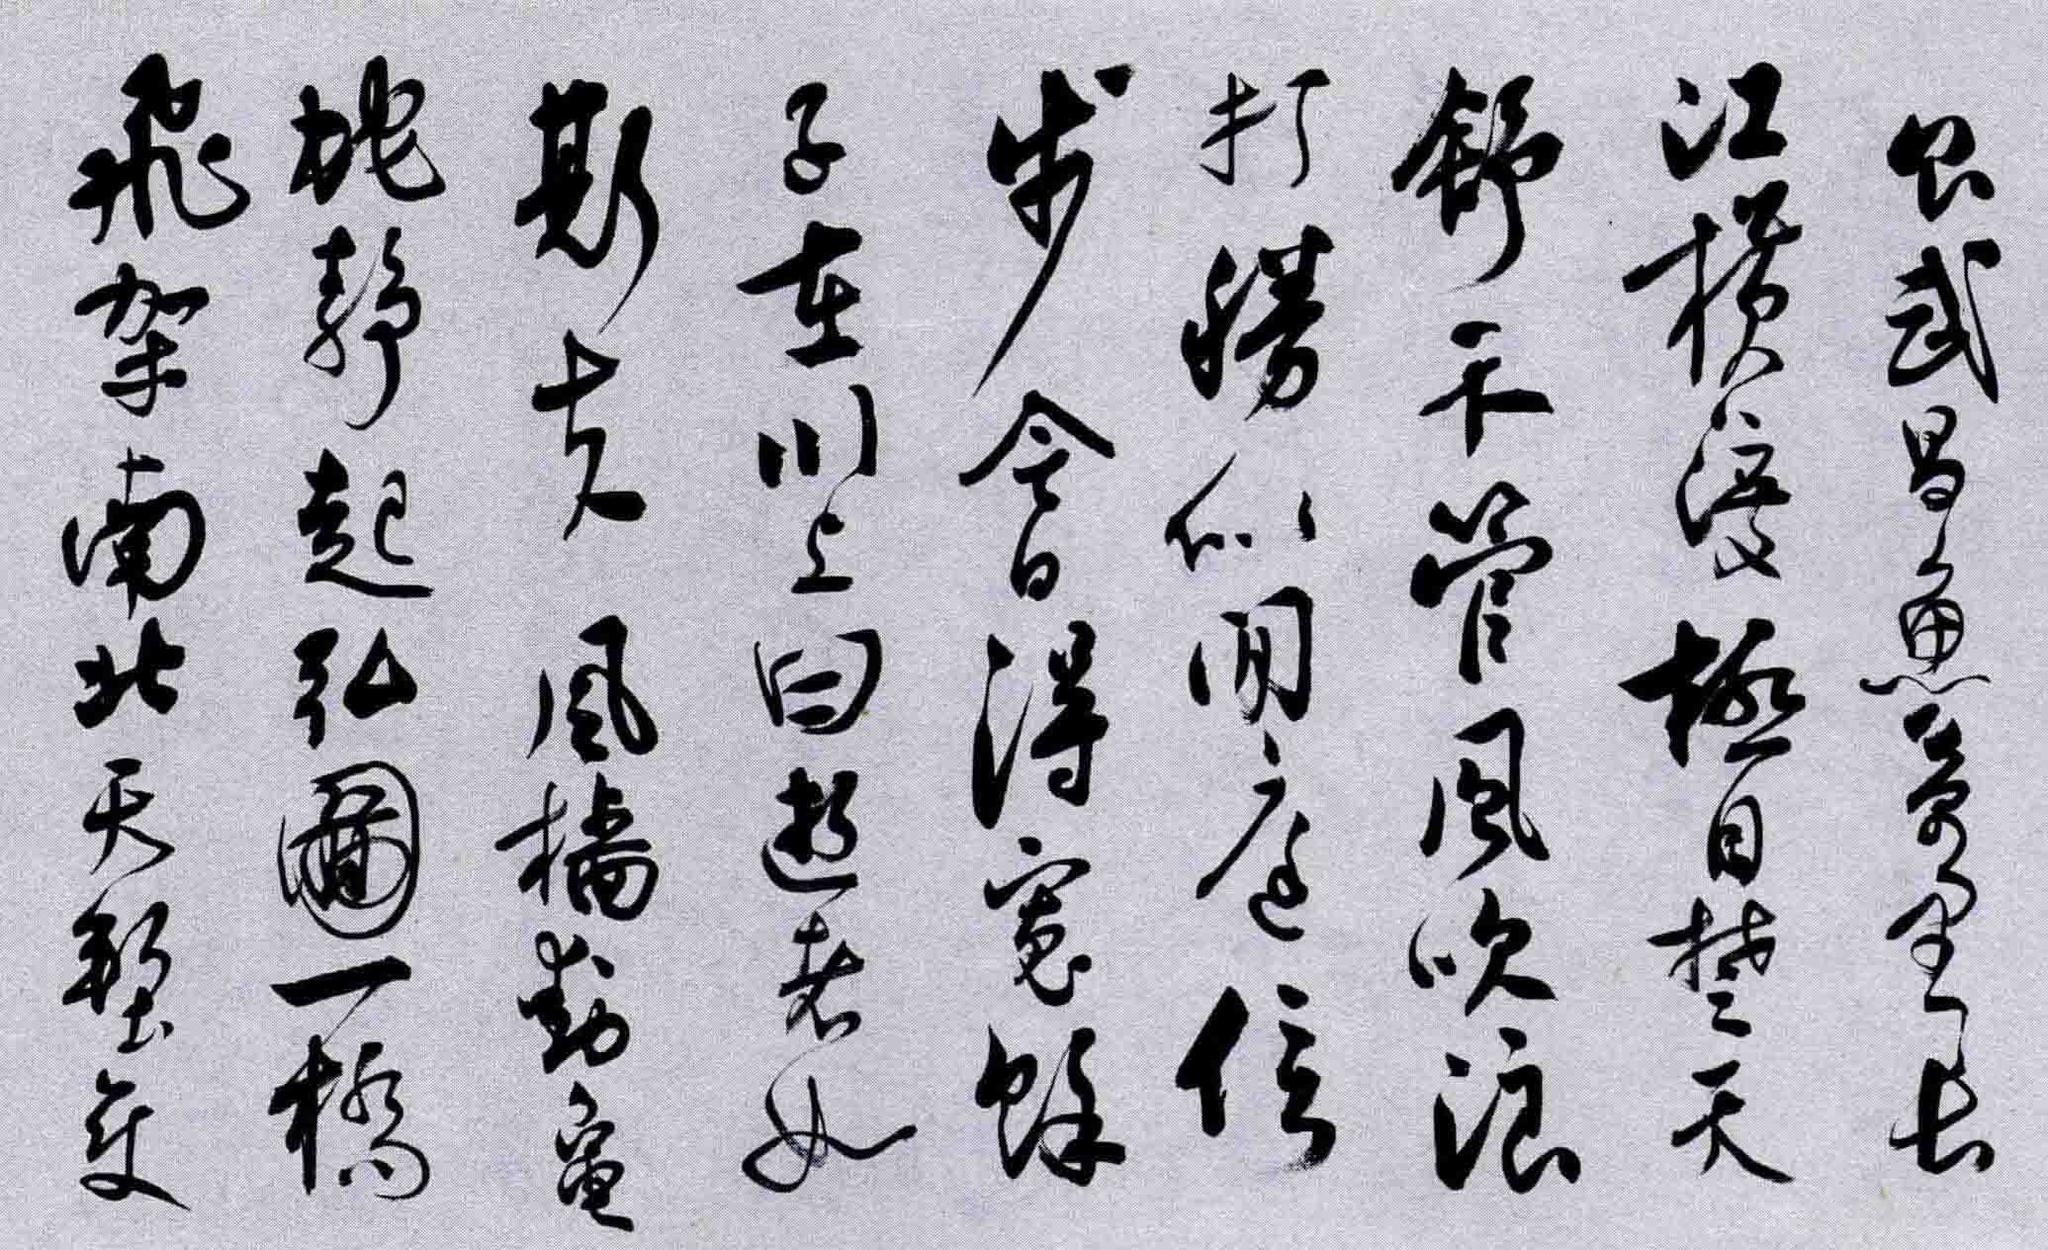 食武昌魚萬里長
江橫渡極目楚天
舒不管風吹浪
打勝似閒庭信
步今日得寬餘
子在川上曰逝者如
斯夫 風檣動龜
蛇靜起弘圖一橋
飛架南北天塹變